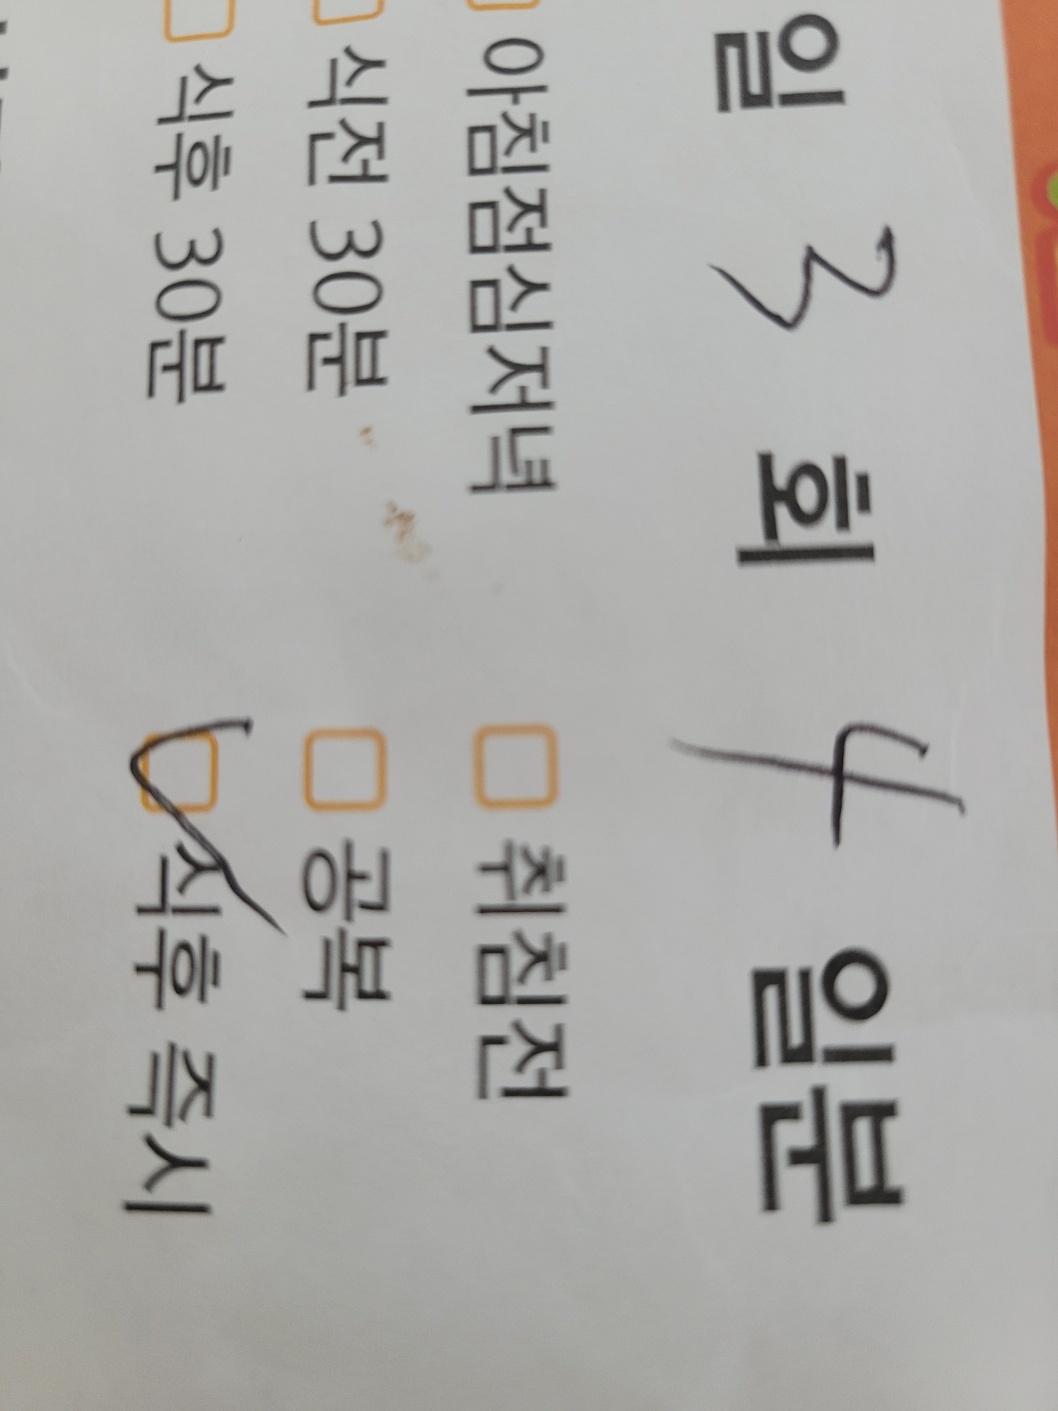 일 3 회 4 일분
아침점심저녁 취침전
식전 30분 공복
식후 30분 식후 즉시